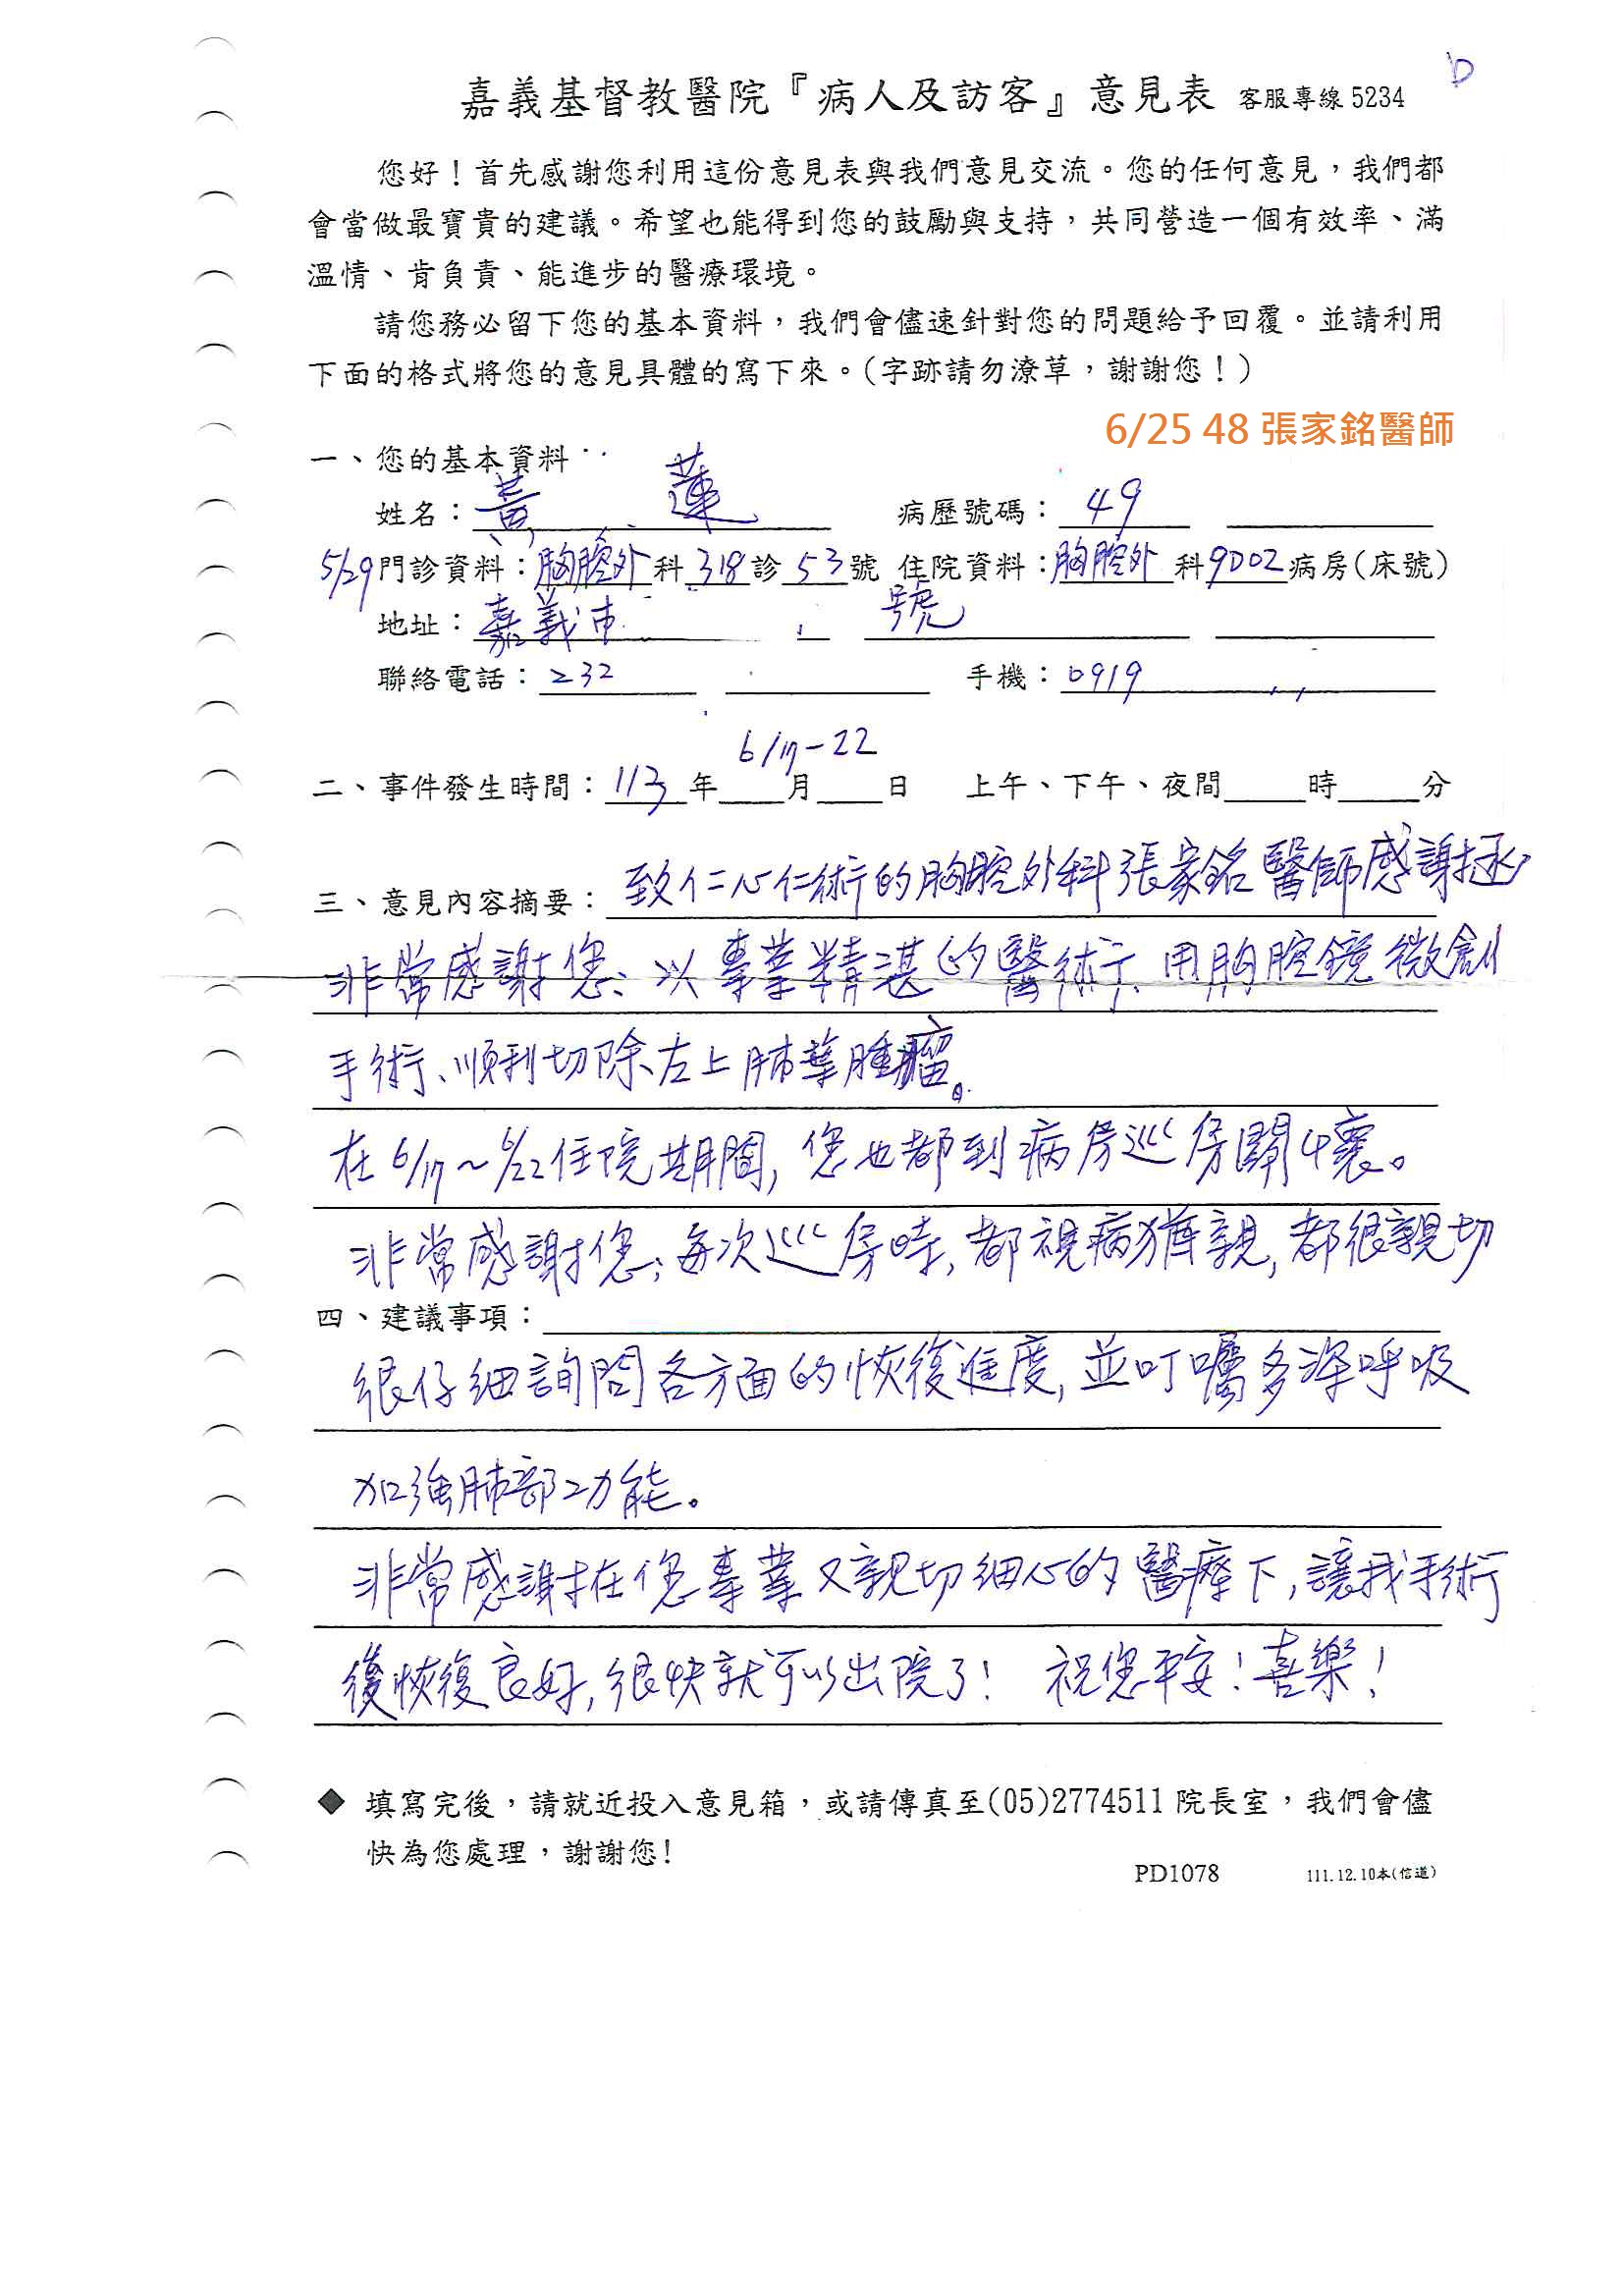 D
嘉義基督教醫院『病人及訪客』意見表 客服專線 5234
您好！首先感謝您利用這份意見表與我們意見交流。您的任何意見，我們都
會當做最寶貴的建議。希望也能得到您的鼓勵與支持，共同營造一個有效率、滿
溫情、肯負責、能進步的醫療環境。
請您務必留下您的基本資料，我們會儘速針對您的問題給予回覆。並請利用
下面的格式將您的意見具體的寫下來。（字跡請勿潦草，謝謝您！）
6/25 48 張家銘醫師
一、您的基本資料：
姓名：黃 蓮 病歷號碼：49
5/29門診資料：胸腔外科 318診 53號 住院資料：胸腔外科9D02病房(床號)
地址：嘉義市 號
聯絡電話：232 手機：0919
6/17-22
二、事件發生時間：113年 月 日 上午、下午、夜間 時 分
三、意見內容摘要：致仁心仁術的胸腔外科張家銘醫師感謝函
非常感謝您、以專業精湛的醫術、用胸腔鏡微創
手術、順利切除左上肺葉腫瘤。
在6/17~6/22住院期間,您也都到病房巡房關懷。
非常感謝您;每次巡房時,都視病猶親,都很親切
四、建議事項：
很仔細詢問各方面的恢復進度,並叮囑多深呼吸
加強肺部功能。
非常感謝在您專業又親切細心的醫療下,讓我手術
後恢復良好,很快就可以出院了! 祝您平安!喜樂!
◆ 填寫完後，請就近投入意見箱，或請傳真至(05)2774511 院長室，我們會儘
快為您處理，謝謝您！
PD1078 111.12.10本(信道)